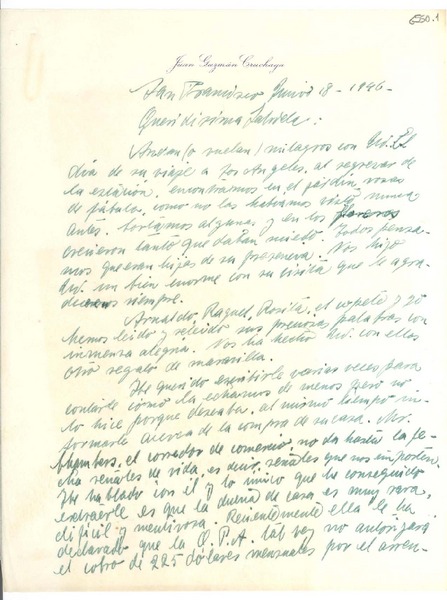 6560.1
Juan Guzmán Cruchaga
San Francisco Junio 18 - 1946 -
Queridísima Gabriela:
Andan (o vuelan) milagros con Ud. El
día de su viaje a Los Angeles, al regresar de
la estación, encontramos en el jardín, rosas
de fábula, como no las habíamos visto nunca
antes. Cortamos algunas y en los floreros
crecieron tanto que daban miedo. Todos pensa-
mos que eran hijas de su presencia. Nos hizo
Ud. un bien enorme con su visita que le agra-
decemos siempre.
Arnaldo, Raquel, Rosita, el y yo
hemos leído y releído sus preciosas palabras con
inmensa alegría. Nos ha hecho Ud. con ellas
otro regalo de maravilla.
He querido escribirle varias veces para
contarle cómo la echamos de menos pero no
lo hice porque deseaba, al mismo tiempo in-
formarle acerca de la compra de su casa. Mr.
Chambers, el corredor de comercio no da hasta la fe-
cha señales de vida, es decir, señales que nos importen.
He hablado con él y lo único que he conseguido
extraerle es que la dueña de casa es muy rara,
difícil y mentirosa. Recientemente ella le ha
declarado que la O.P.A. tal vez no autorizara
el cobro de 225 dólares mensuales por el arren-